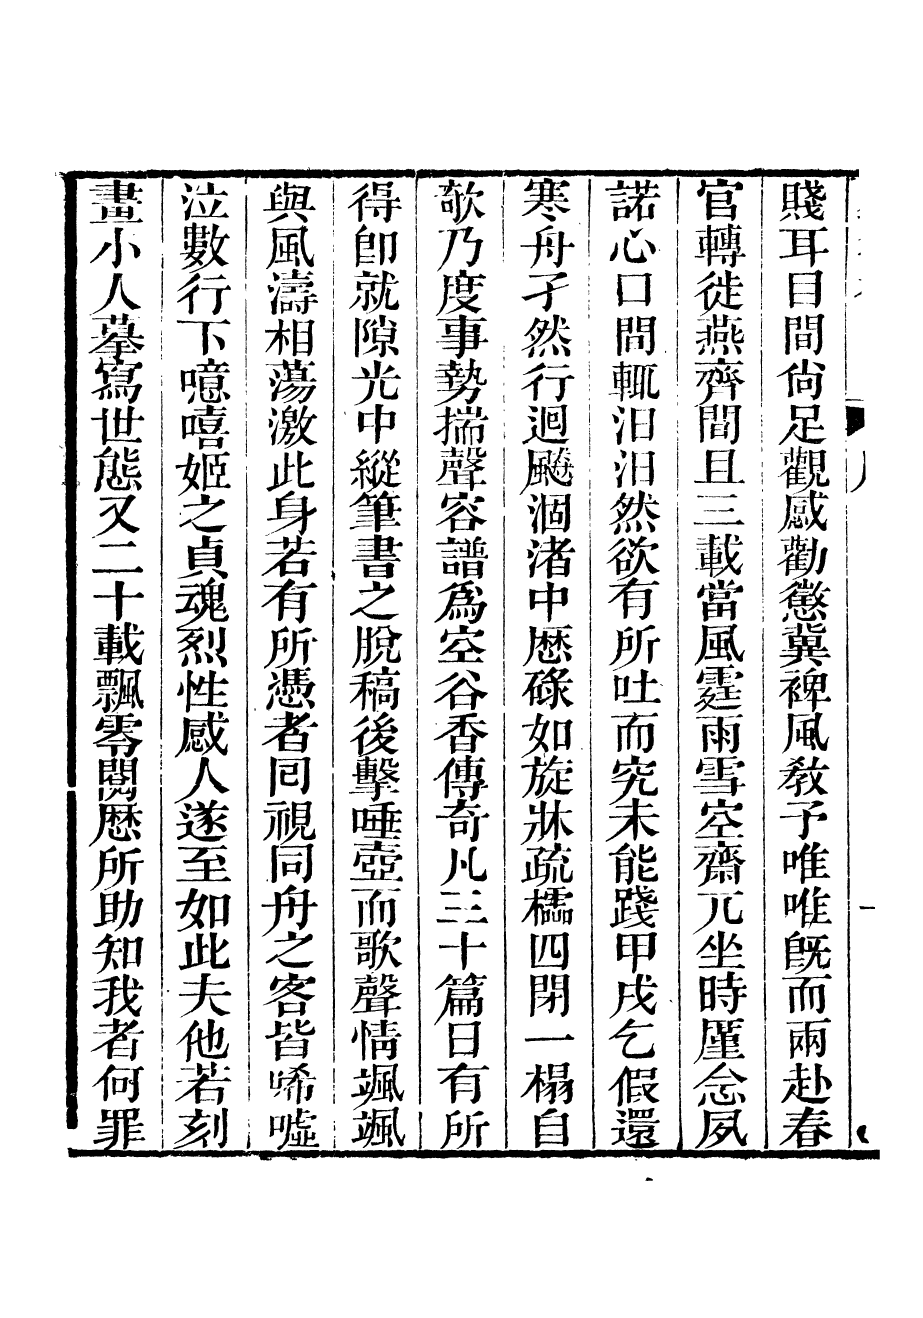 賤耳目間尙足觀感勸懲冀裨風敎予唯唯旣而兩赴春
官轉徙燕齊間且三載當風霆雨雪空齋兀坐時厪念夙
諾心口間輒汩汩然欲有所吐而究未能踐甲戌乞假還
寒舟孑然行迴飈涸渚中歷碌如旋牀疏櫺四閉一榻自
欹乃度事勢揣聲容譜爲空谷香傳奇凡三十篇日有所
得卽就隙光中縱筆書之脫稿後擊唾壺而歌聲情颯颯
與風濤相蕩激此身若有所憑者回視同舟之客皆唏噓
泣數行下噫嘻姬之貞魂烈性感人遂至如此夫他若刻
畫小人摹寫世態又二十載飄零閱歷所助知我者何罪